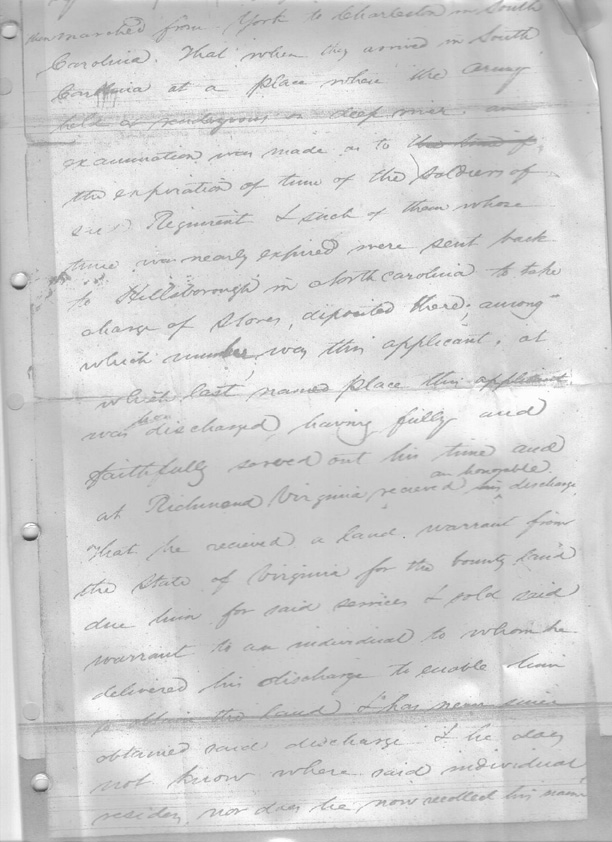 marched from York to Charleston in South
Carolina. That when they arrived in South
Carolina at a place where the army
held a rendezvous on deep river. an
examination was made as to
the expiration of time of the soldiers of
Regiment & such of them whose
time was nearly expired were sent back
to Hillsborough in North Carolina to take
charge of stores, diposited there; among
which number, was this applicant, at
which last named place this applicant
was discharged, having fully and
faithfully served out his time and
at Richmond Virginia recieved an honorable discharge.
That he recieved a land warrant from
the State of Virginia for the bounty land
due him for said services & sold said
warrant to an individual to whom he
delivered his discharge to enable him
to obtain the land & has never since
obtained said discharge & he does
not know where said individual
resides, nor does he now recollect his name